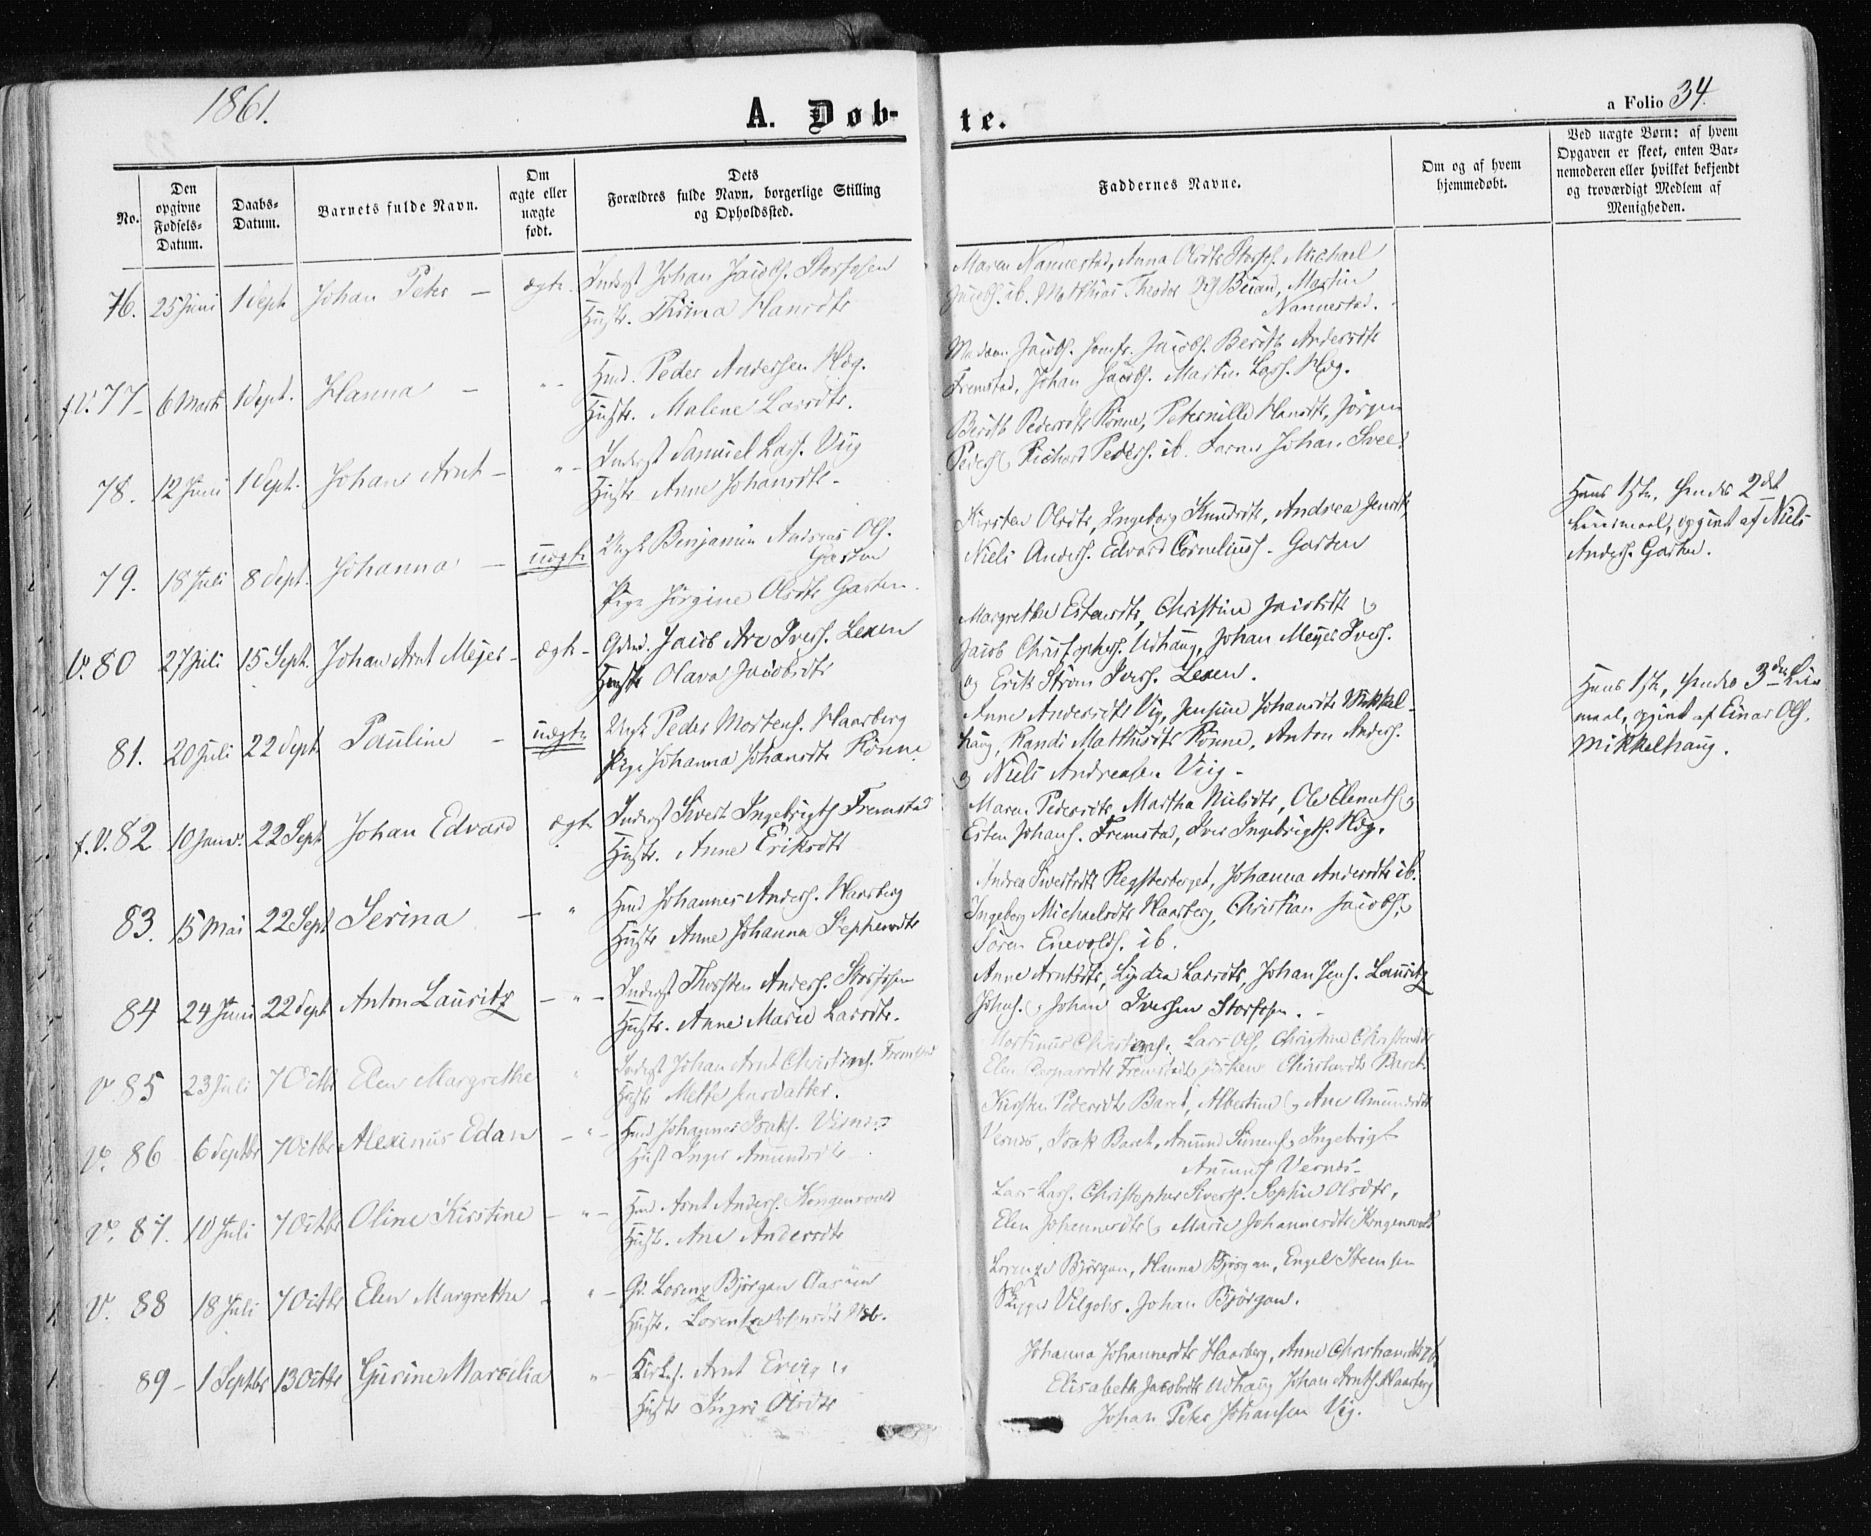 1861.
A. Døb-
te.
a Folio 34.
No.
Den opgivne Fødsels-Datum.
Daabs-Datum.
Barnets fulde Navn.
Om ægte eller uægte født.
Dets Forældres fulde Navn, borgerlige Stilling og Opholdssted.
Faddernes Navne.
Om og af hvem hjemmedøbt.
Ved uægte Børn: af hvem Opgaven er skeet, enten Barnemoderen eller hvilket bekjendt og troværdigt Medlem af Menigheden.
76. 25 Juni 1 Sept. Johan Peter - ægte. Inderst Johan Jacobs. Storfosen
Hustr. Hansdtr
Maren Nannestad, Anna Olsdtr Storfos. Michael
Jacobs. ib. Matthias Theodor Beian, Martin
Nannestad.
f.V. 77 - 6 Marts 1 Sept. Hanna - " - Hmd. Peder Andersen Hög.
Hustr. Malene Larsdtr.
Madam Jacobs. Jomfr. Jacobs. Berith Andersdtr
Fremstad, Johan Jacobs. Martin Lars. Hög.
78. 12 Juni 1 Sept. Johan Arnt - " - Inderst Samuel Lars. Viig
Hustr Anne Johansdtr -
Berith Pedersdtr Rönne, Peternille Hansdtr, Jörgen
Peders. Richard Peders. ib. Johan
79. 18 Juli 8 Sept. Johanna - uægte Ungk Benjamin Andreas Ols.
Garten
Pige Jörgine Olsdtr Garten.
Kirsten Olsdtr, Ingeborg Knudsdtr, Andrea Jensdtr,
Niels Anders. Edvard Cornelius. Garten
Hans 1ste, hendes 2det
Leiermaal, opgivet af Niels
Anders. Garten.
V. 80 27 Juli 15 Sept. Johan Arnt Meyer - ægte - Gdmd. Jacob Are Ivers. Lexen
Hustr Olava Jacobsdtr
Margrethe Estensdtr, Christine Jacobsdtr og
Jacob Christophers. Udhaug, Johan Meyer Ivers.
og Erik Ström Ivers. Lexen.
81. 20 Juli 22 Sept Pauline - uægte Ungk Peder Mortens. Haarberg
Pige Johanna Johansdtr Rönne
Anne Andersdtr Vig, Jensine Johansdtr Mikkel-
haug, Randi Matthisdtr Rönne, Anton Anders.
og Niels Andreasen Viig -
Hans 1ste, hendes 3die Leier
maal, opgivet af Einar Ols.
Mikkelhaug.
f.V. 82 10 Janv. 22 Sept Johan Edvard ægte Inderst Sivert Ingebrigts Fremstad
Hustr. Anne Eriksdtr
Maren Pedersdtr, Martha Nielsdtr, Ole Clemets og
Esten Johans. Fremstad, Iver Ingebrigts. Hög.
83. 15 Mai 22 Sept Serina - " Hmd Johannes Anders. Haarberg
Hustr Anne Johanna Stephensdtr
Andrea Sivertsdtr, Johanna Andersdtr ib.
Ingeborg Michaelsdtr Haarberg, Christian Jacobs. og
Sören Enevolds. ib.
84 24 Juni 22 Sept Anton Lauritz - " - Inderst Thorsten Anders. Storfosen
Hustr. Anne Marie Larsdtr.
Anne Arntsdtr, Lydia Larsdtr, Johan Jens. Lauritz
Johns. og Johan Iversen Storfosen. -
V 85 23 Juli 7 Octbr Elen Margrethe " Inderst Johan Arnt Christians. Fremstad
Hustr Mette Jensdatter.
Martinus Christians. Lars Ols. Christine Christensdtr
Elen Caspersdtr Fremstad,
V. 86 6 Septbr 7 Octbr Alexinus Edan - " - Hmd Johannes Isaks. Vernes
Hust Inger Amundsdtr -
Kirsten Pedersdtr Baret, Albertine og Ane Amundsdtr
Vernes, Isak Baret, Amund Simens. og Ingebrigt
Amunds Vernes -
V. 87. 10 Juli 7 Octbr Oline Kirstine - " - Hmd. Arnt Anders. Kongensvold
Hustr. Ane Andersdtr
Lars Lars. Christopher Siverts. Sophie Olsdtr,
Elen Johannesdtr og Marie Johannesdtr Kongensvold
V. 88 18 Juli 7 Octbr Elen Margrethe - " - Gd. Lorenz Björgan
Hustr.
Lorenze Björgan, Hanna Björgan, Engel Steensen
Skipper Johan Björgan.
89 - 1 Septbr 13 Octbr Gurine Marcelia " - Arnt
Hustr Ingri Olsdtr
Johanna Johannesdtr Haarberg, Anne Christiansdtr ib.
Elisabeth Jacobsdtr Udhaug Johan Arnts. Haarberg
Johan Peter Johansen Vig.